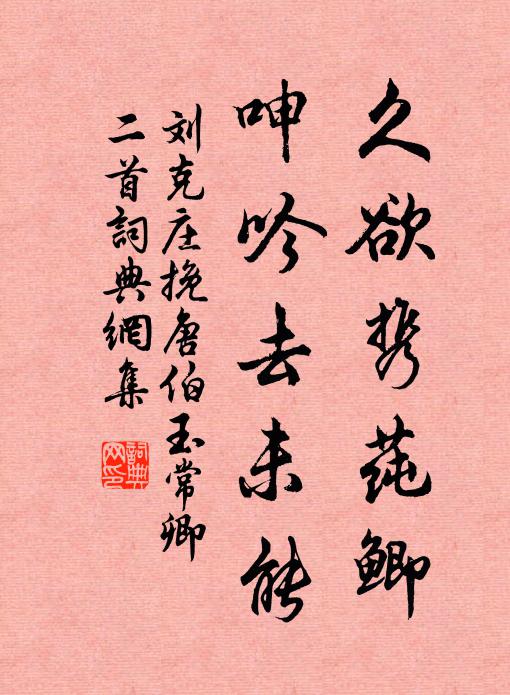 久欲携莼鲫
呻吟去未能
刘克庄挽唐伯玉常卿
二首詞典網集
詞典
网印